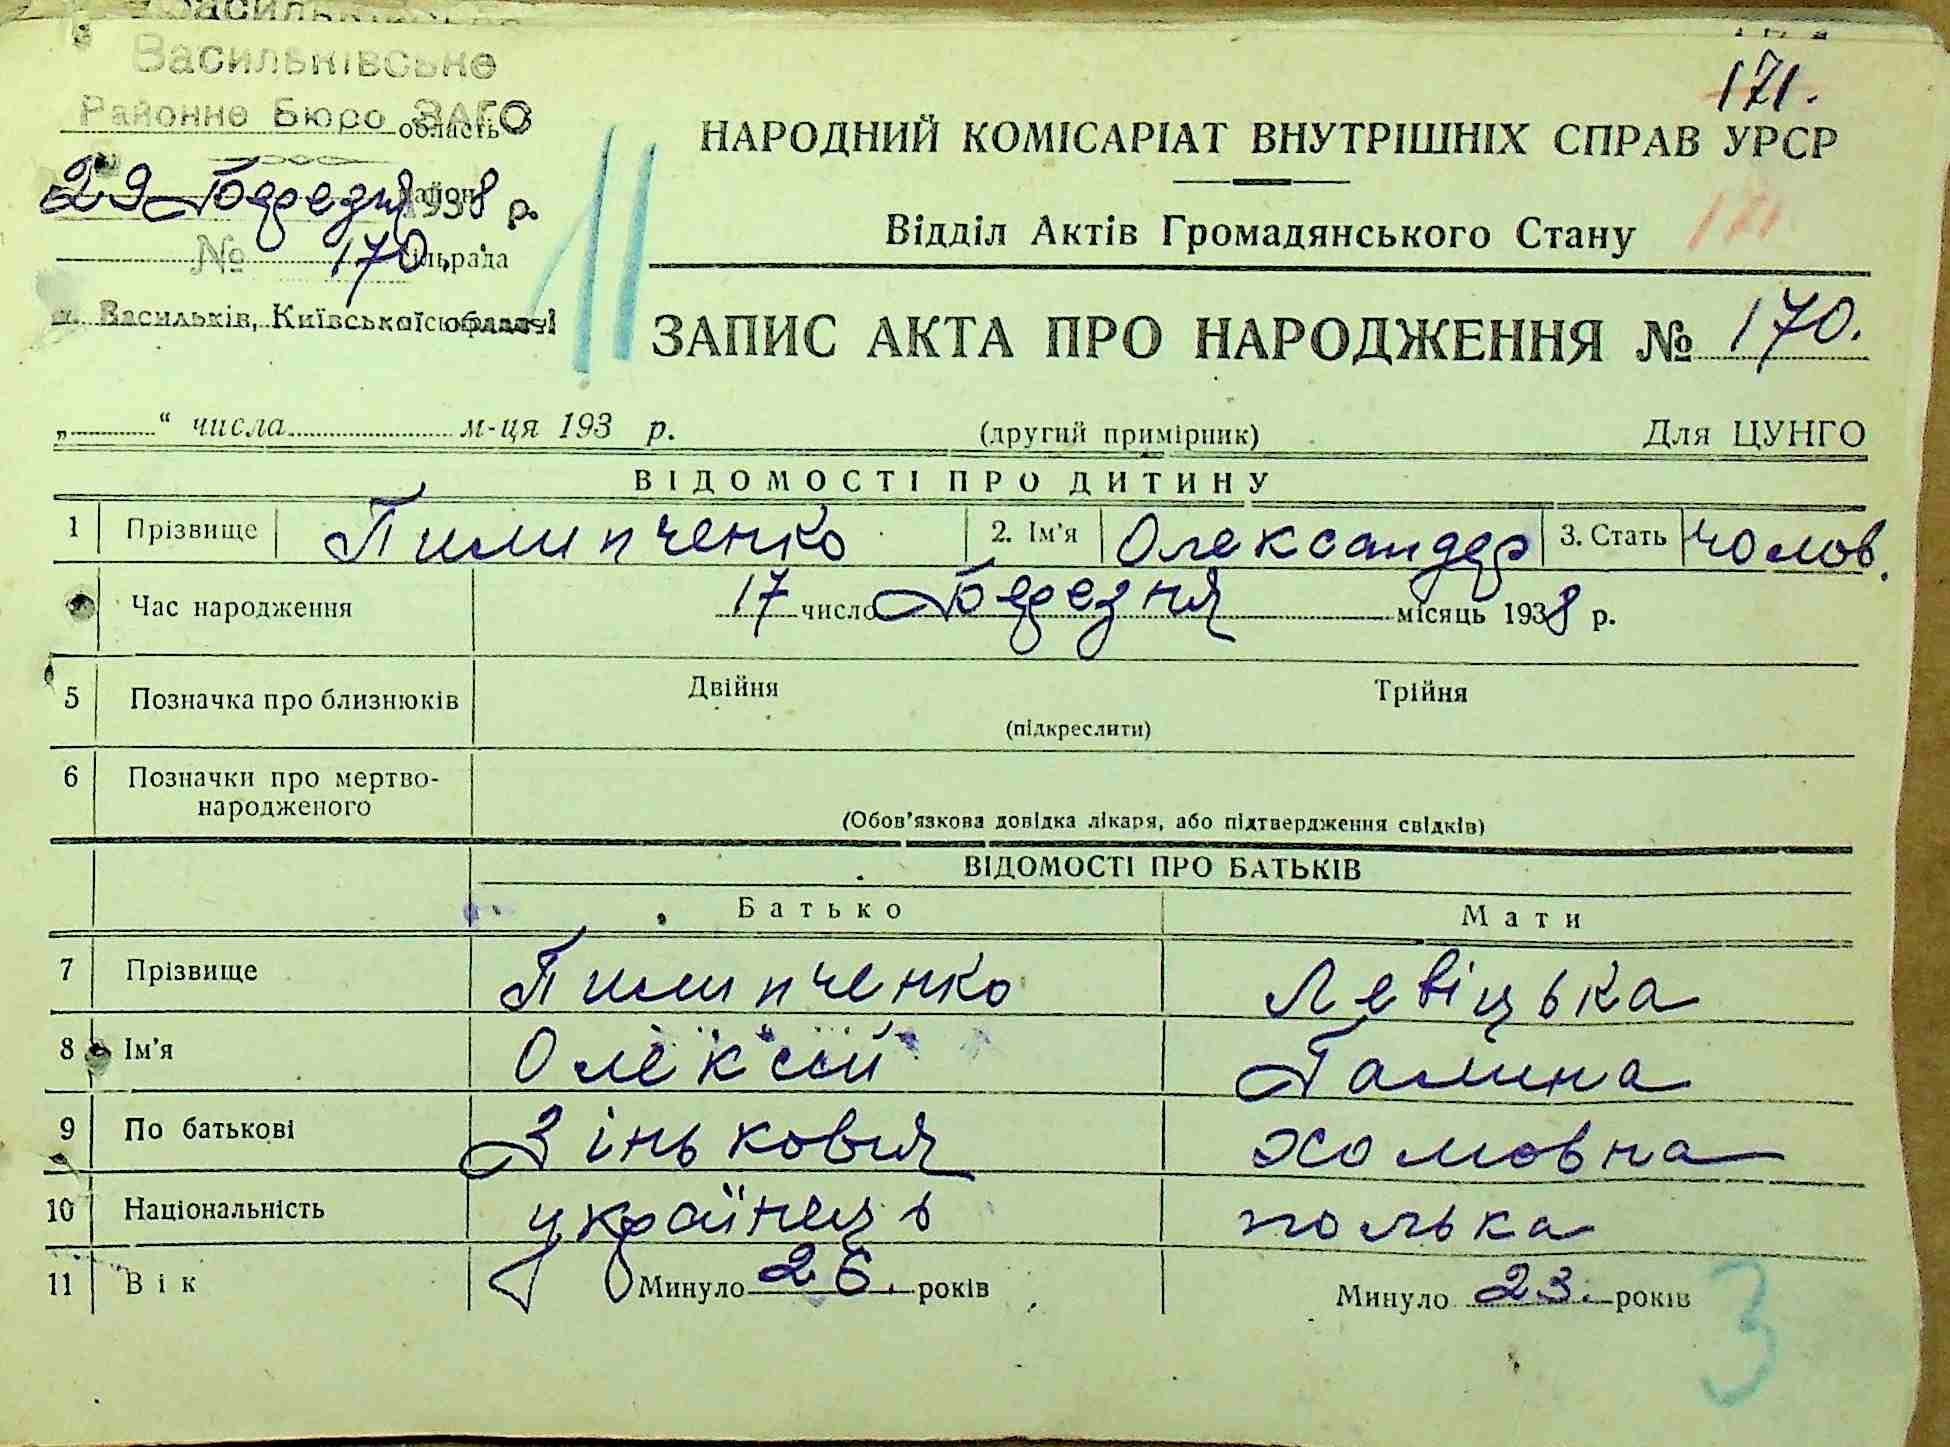 Васильківське
Районне Бюро ЗАГС
область
29 Березня 1938 р.
район
№ 170
сільрада
м. Васильків, Київської області
171.
НАРОДНИЙ КОМІСАРІАТ ВНУТРІШНІХ СПРАВ УРСР
171.
Відділ Актів Громадянського Стану
11
ЗАПИС АКТА ПРО НАРОДЖЕННЯ № 170.
„ “ числа м-ця 193 р. (другий примірник) Для ЦУНГО
ВІДОМОСТІ ПРО ДИТИНУ
1 Прізвище Пилипченко 2. Ім’я Олександер 3. Стать чолов.
Час народження 17 число Березня місяць 1938 р.
5 Позначка про близнюків Двійня Трійня
(підкреслити)
6 Позначки про мертво-
народженого
(Обов’язкова довідка лікаря, або підтвердження свідків)
ВІДОМОСТІ ПРО БАТЬКІВ
Батько Мати
7 Прізвище Пилипченко Левіцька
8 Ім’я Олексій Галина
9 По батькові Зінькович Хомовна
10 Національність українець полька
11 Вік Минуло 26. років Минуло 23. років
3